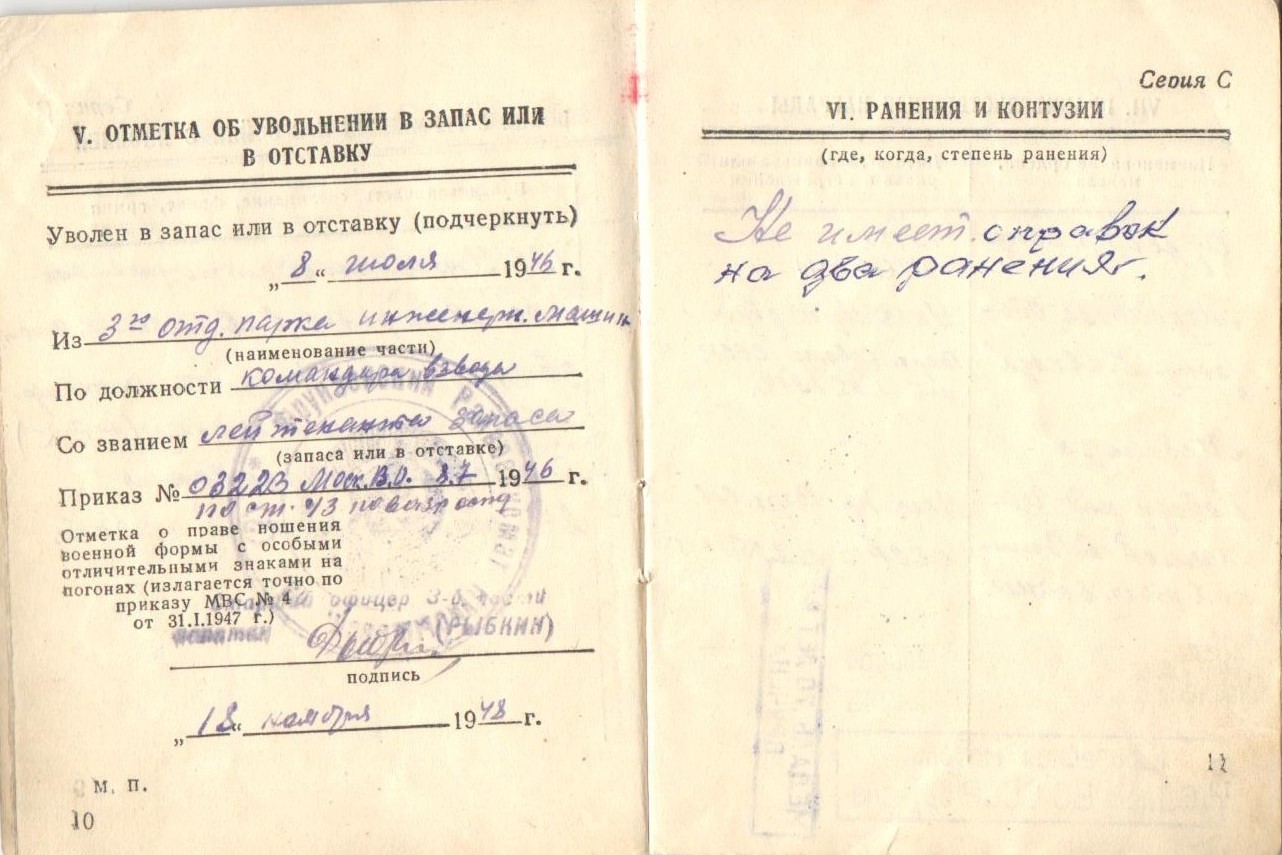 V. ОТМЕТКА ОБ УВОЛЬНЕНИИ В ЗАПАС ИЛИ
В ОТСТАВКУ
Уволен в запас или в отставку (подчеркнуть)
„8“ июля 1946 г.
Из 3го отд. парка инженерн. машин
(наименование части)
По должности командира взвода
Со званием лейтенанта запаса
(запаса или в отставке)
Приказ № 03223 Моск.В.О. 8.7 1946 г.
по ст. 43 по возрасту
Отметка о праве ношения
военной формы с особыми
отличительными знаками на
погонах (излагается точно по
приказу МВС № 4
от 31.I.1947 г.)
офицер 3-й части
(РЫБКИН)
подпись
„18“ ноября 1948 г.
М. П.
10
Серия С
VI. РАНЕНИЯ И КОНТУЗИИ
(где, когда, степень ранения)
Не имеет справок
на два ранения.
11